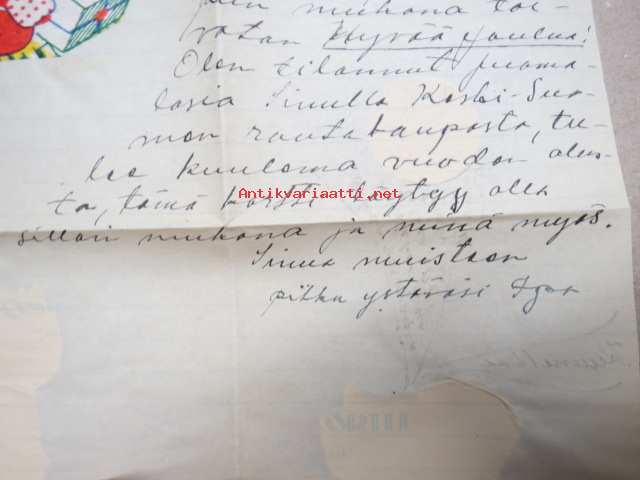 mukana toi-
votan Hyvää Joulua!
Olen tilannut juoma-
lasia Sinulle Keski-Suo-
men rautakaupasta, tu-
lee kuulema vuoden alus-
ta, tämä kortti täytyy olla
silloin mukana ja minä myös.
Sinua muistaen
ystäväsi
Antikvariaatti.net